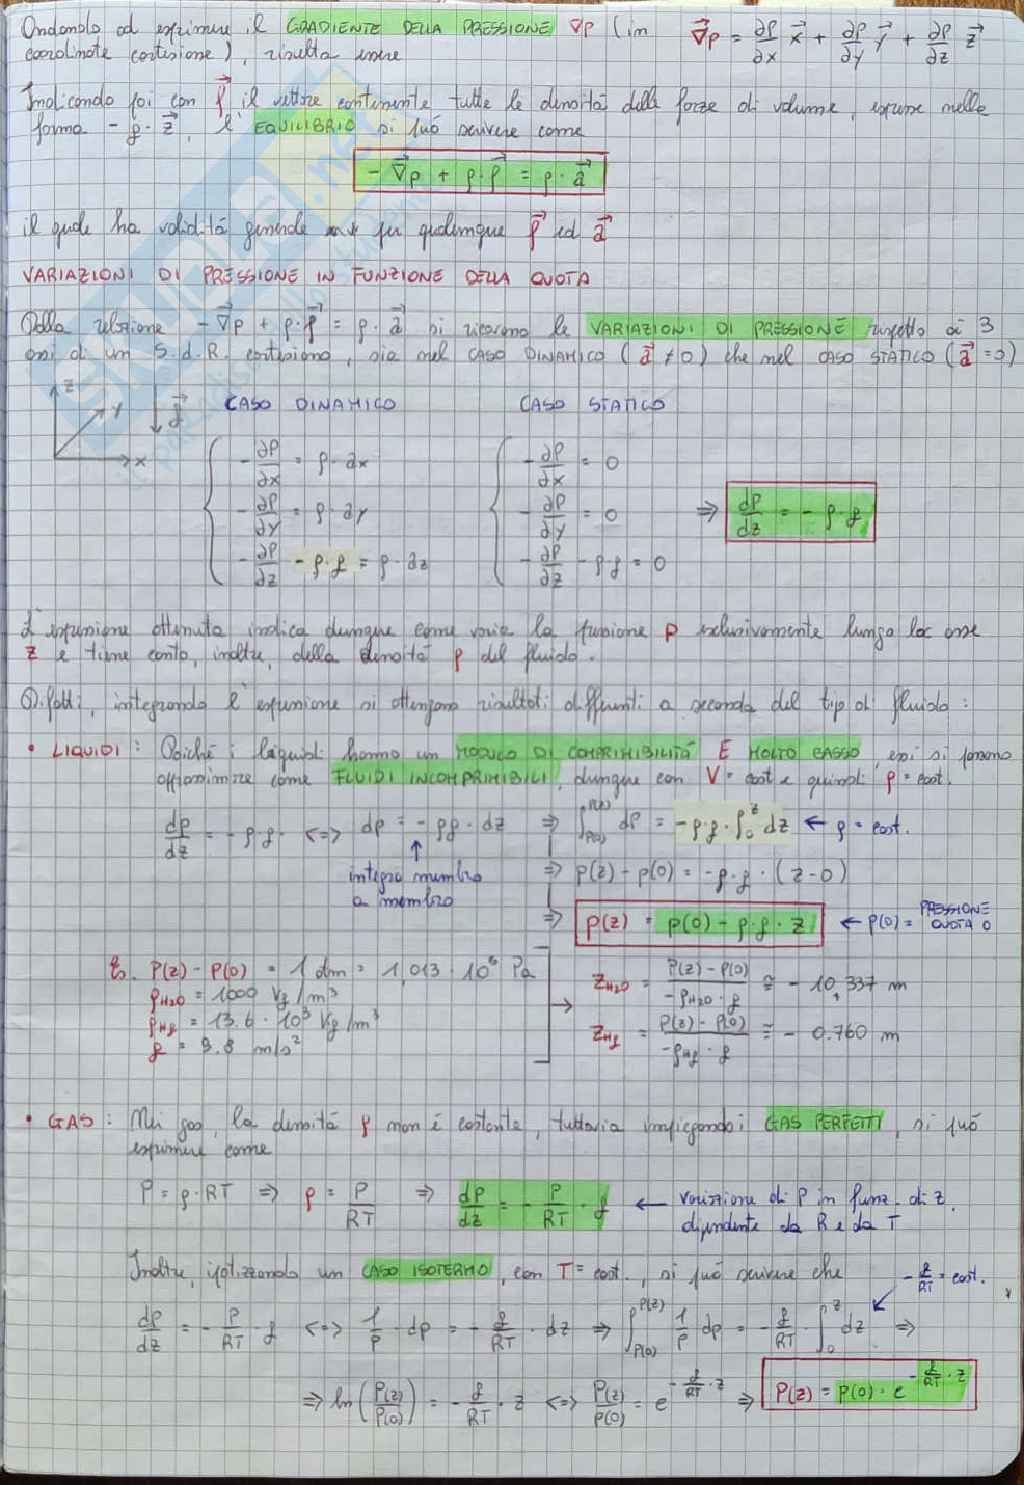 Andandolo ad esprimere il GRADIENTE DELLA PRESSIONE ∇p (in
coordinate cartesiane), risulta essere
∇⃗p = ∂p/∂x x⃗ + ∂p/∂y y⃗ + ∂p/∂z z⃗
Indicando poi con f⃗ il vettore contenente tutte le densità delle forze di volume, espresse nella
forma - g · z⃗, l'EQUILIBRIO si può scrivere come
- ∇⃗p + ρ·f⃗ = ρ · a⃗
il quale ha validità generale per qualunque f⃗ ed a⃗
VARIAZIONI DI PRESSIONE IN FUNZIONE DELLA QUOTA
Dalla relazione -∇⃗p + ρ·f⃗ = ρ · a⃗ si ricavano le VARIAZIONI DI PRESSIONE rispetto ai 3
assi di un S.d.R. cartesiano, sia nel CASO DINAMICO (a⃗ ≠ 0) che nel CASO STATICO (a⃗ = 0)
z y x g⃗
CASO DINAMICO CASO STATICO
- ∂P/∂x = ρ · ax - ∂P/∂x = 0
- ∂P/∂y = ρ · ay - ∂P/∂y = 0 ⇒ dP/dz = - ρ·g
- ∂P/∂z - ρ·g = ρ · az - ∂P/∂z - ρ·g = 0
L'espressione ottenuta indica dunque come varia la funzione p esclusivamente lungo l'asse
z e tiene conto, inoltre, della densità ρ del fluido.
Difatti, integrando l'espressione si ottengono risultati differenti a seconda del tipo di fluido:
• LIQUIDI: Poiché i liquidi hanno un MODULO DI COMPRIMIBILITÀ E MOLTO BASSO, essi si possono
approssimare come FLUIDI INCOMPRIMIBILI, dunque con V = cost e quindi ρ = cost.
dp/dz = - ρ·g <=> dp = - ρg · dz ⇒ ∫P(0)^P(z) dP = -ρ·g·∫0^z dz ← ρ = cost.
integro membro
a membro
⇒ p(z) - p(0) = -ρ·g · (z-0)
⇒ p(z) = p(0) - ρ·g · z ← p(0) = PRESSIONE QUOTA 0
Es. P(z) - P(0) = 1 atm = 1,013 · 10⁵ Pa
ρH2O = 1000 Kg/m³
ρHg = 13.6 · 10³ Kg/m³
g = 9.8 m/s²
zH2O = P(z)-P(0)/-ρH2O · g ≅ - 10,337 m
zHg = P(z)-P(0)/-ρHg · g ≅ - 0.760 m
• GAS: Nei gas, la densità ρ non è costante, tuttavia impiegando i GAS PERFETTI, si può
esprimere come
P = ρ·RT ⇒ ρ = P/RT ⇒ dP/dz = - P/RT · g ← variazione di P in funz. di z.
dipendente da R e da T
Inoltre, ipotizzando un CASO ISOTERMO, con T = cost., si può scrivere che
- g/RT = cost.
dP/dz = - P/RT · g <=> 1/P · dp = - g/RT · dz ⇒ ∫P(0)^P(z) 1/P dp = - g/RT · ∫0^z dz ⇒
⇒ ln(P(z)/P(0)) = - g/RT · z <=> P(z)/P(0) = e^(- g/RT · z) ⇒ P(z) = P(0) · e^(- g/RT · z)